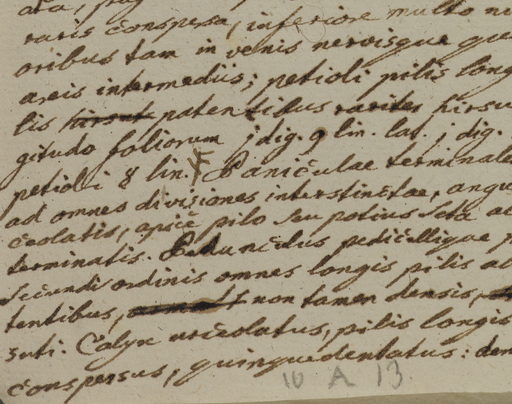 raris conspersa, inferiore multo
oribus tam in venis nervisque
areis intermediis; petioli pilis long
lis hirsut patentibus rarites hirsu
gitudo foliorum 1 dig. 9 lin. lat. 1 dig.
petioli 8 lin. Paniculae terminale
ad omnes divisiones interstinctae, angu
ceolatis, apice pilo seu potius seta
terminatis. Pedunculus pedicellique
secundi ordinis omnes longis pilis
tentibus, non tamen densis,
suti. Calyx urceolatus, pilis longis
conspersus, quinquedentatus: den
10 A 13.